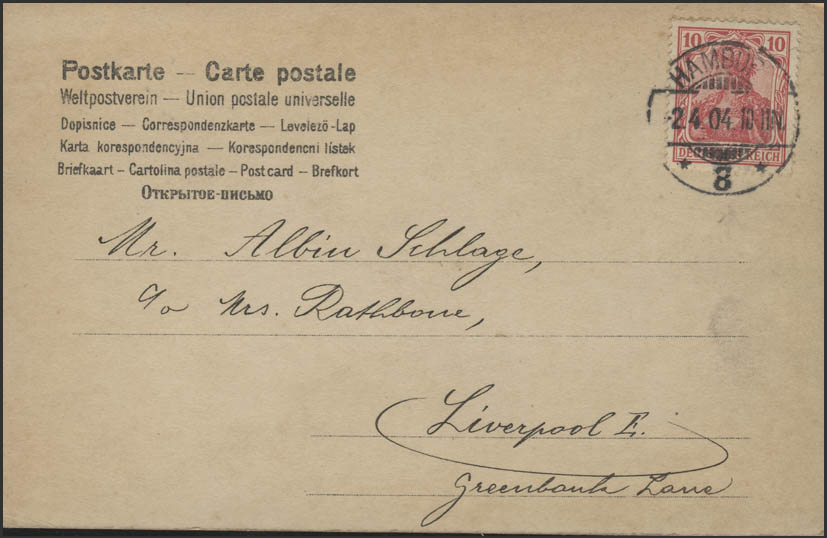 Postkarte — Carte postale
Weltpostverein — Union postale universelle
Dopisnice — Correspondenzkarte — Levelező-Lap
Karta korespondencyjna — Korespondencni lístek
Briefkaart — Cartolina postale — Post card — Brefkort
Открытое-письмо
10 10
HAMBUR
2.4.04.10-11N.
DEUTSCHES REICH
* 8 *
Mr. Albin Schlage,
c/o Mrs. Rathbone,
Liverpool E.
Greenbank Lane